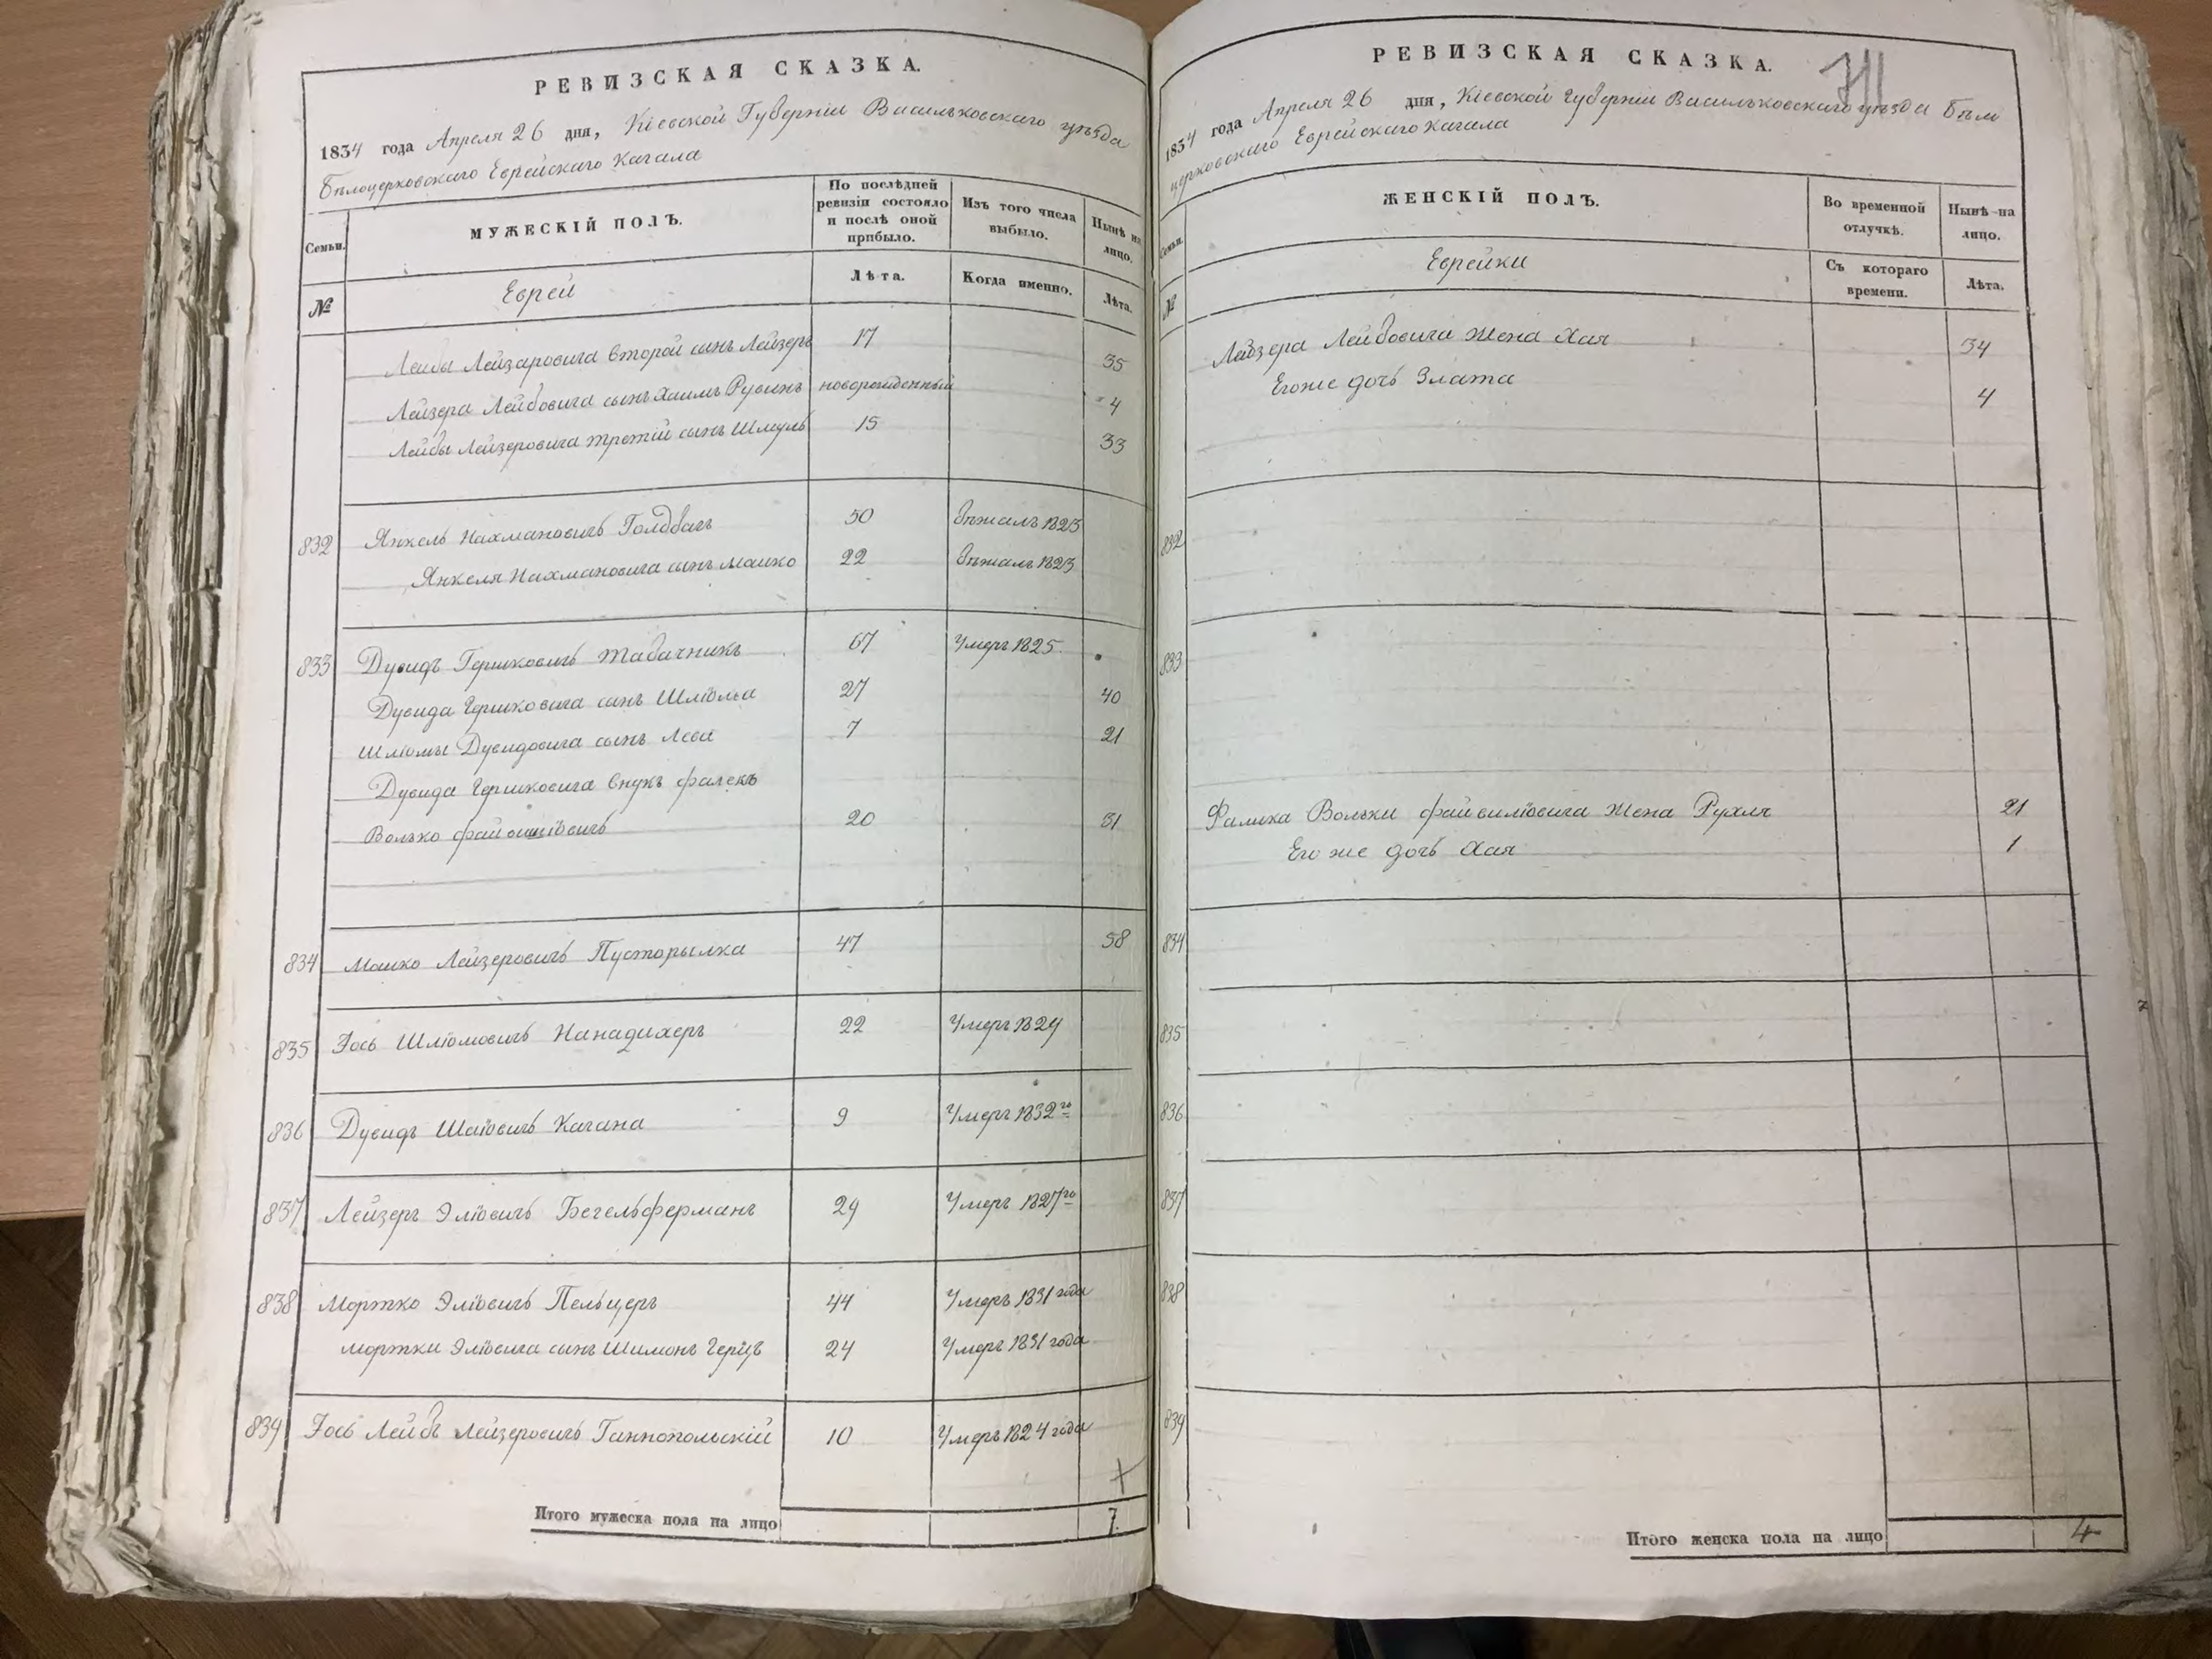 РЕВИЗСКАЯ СКАЗКА.
1834 года Апреля 26 дня, Кіевской Губерніи Васильковскаго уѣзда
Бѣлоцерковскаго Еврейскаго Кагала
Семьи.
МУЖЕСКІЙ ПОЛЪ.
По послѣдней ревизіи состояло и послѣ оной прибыло.
Изъ того числа выбыло.
Нынѣ на лицо.
№
Еврей
Лѣта.
Когда именно.
Лѣта.
Лейбы Лейзаровича второй сынъ Лейзеръ 17 35
Лейзера Лейбовича сынъ Хаимъ Рувинъ новорожденный 4
Лейбы Лейзеровича третій сынъ Шмуль 15 33
832 Янкель Нахмановичъ Голдбагъ 50 бѣжалъ 1823
Янкеля Нахмановича сынъ Мошко 22 бѣжалъ 1823
833 Дувидъ Гершковичъ Табачникъ 67 Умеръ 1825
Дувида Гершковича сынъ 27 40
Шліомы Дувидовича сынъ 7 21
Дувида Гершковича внукъ фалекъ
Волько 20 31
834 Мошко Лейзеровичъ Пусторылка 47 58
835 Іось Шліомовичъ Нападихеръ 22 Умеръ 1829
836 Дувидъ Шаіовичъ Кагана 9 Умеръ 1832го
837 Лейзеръ Эліовичъ Бегельферманъ 29 Умеръ 1827го
838 Мортко Эліовичъ Пельцеръ 44 Умеръ 1831 года
Мортки Эліовича сынъ Шимонъ Герцъ 24 Умеръ 1831 года
839 Іось Лейбъ Лейзеровичъ Ганнопольскій 10 Умеръ 1824 года
Итого мужеска пола на лицо 7
РЕВИЗСКАЯ СКАЗКА.
1834 года Апреля 26 дня, Кіевской Губерніи Васильковскаго уѣзда Бѣло
церковскаго Еврейскаго Кагала
Семьи.
ЖЕНСКІЙ ПОЛЪ.
Во временной отлучкѣ.
Нынѣ на лицо.
№
Еврейки
Съ котораго времени.
Лѣта.
Лейзера Лейбовича Жена Хая 34
Егоже дочь Злата 4
832
833
Фалика Вольки файвиліовича Жена Рухля 21
Его же дочь Хая 1
834
835
836
837
838
839
Итого женска пола на лицо 4